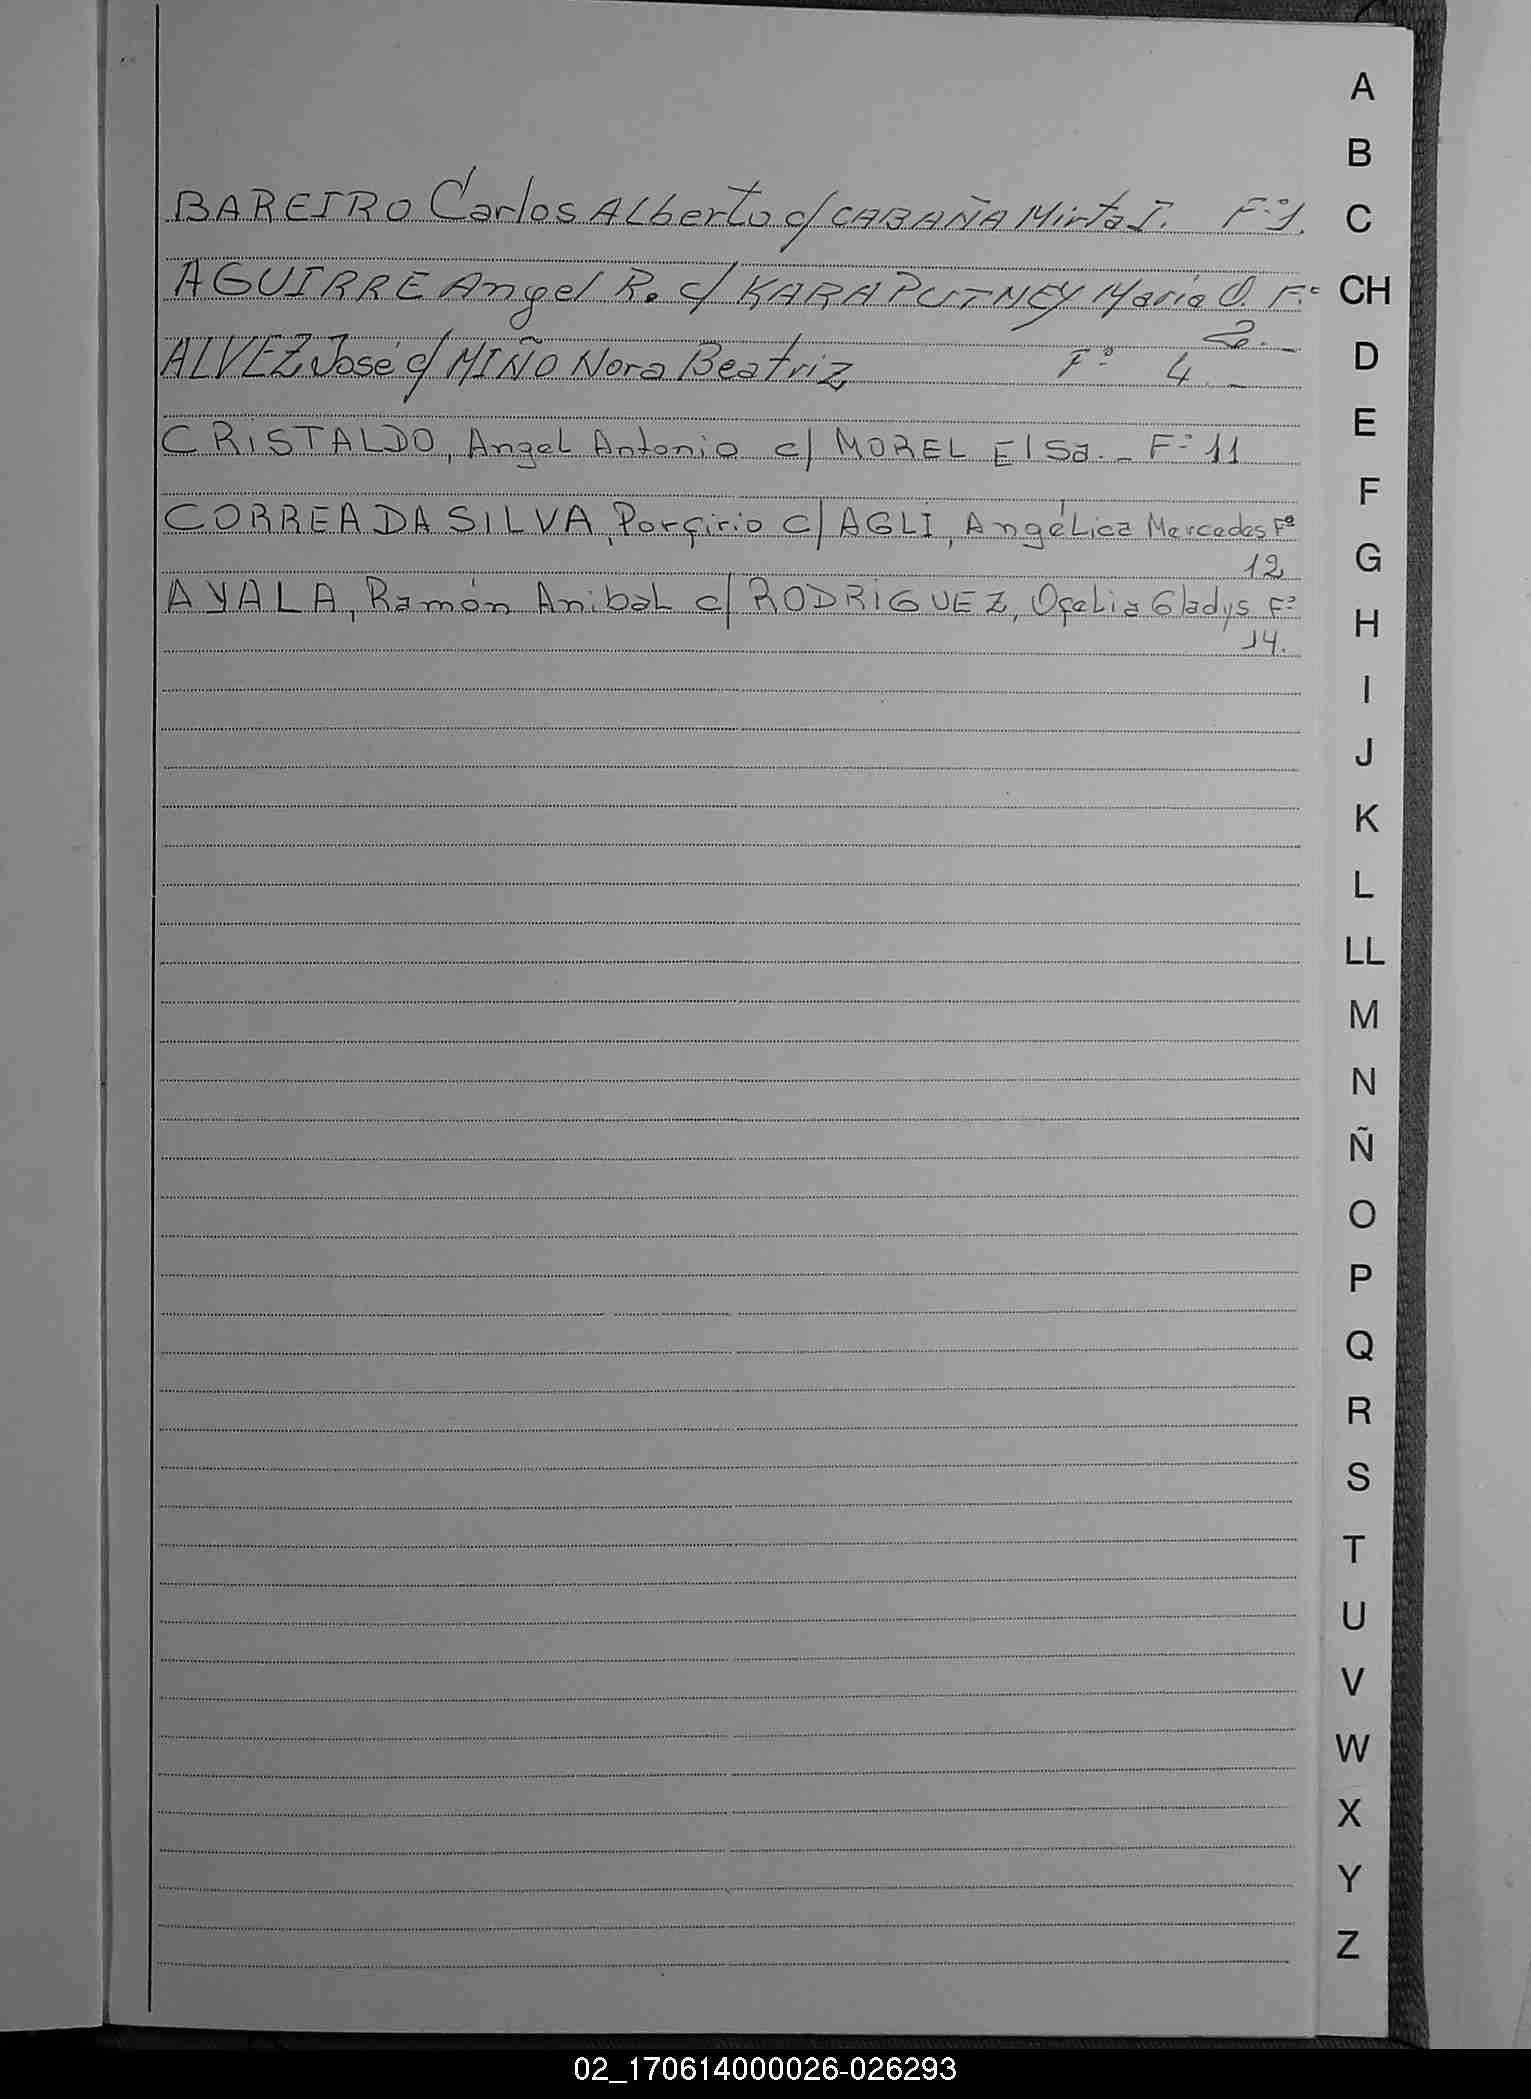 BAREIRO Carlos Alberto c/ CABAÑA Mirta I. Fº 1.
AGUIRRE Angel R. c/ KARAPUTNEY María O. Fº
2._
ALVEZ José c/ MIÑO Nora Beatriz Fº 4._
CRISTALDO, Angel Antonio c/ MOREL Elsa._ Fº 11
CORREA DA SILVA, Porfirio c/ AGLI, Angélica Mercedes Fº
12
AYALA, Ramón Anibal c/ RODRIGUEZ, Ofelia Gladys Fº
14.
A
B
C
CH
D
E
F
G
H
I
J
K
L
LL
M
N
Ñ
O
P
Q
R
S
T
U
V
W
X
Y
Z
02_170614000026-026293